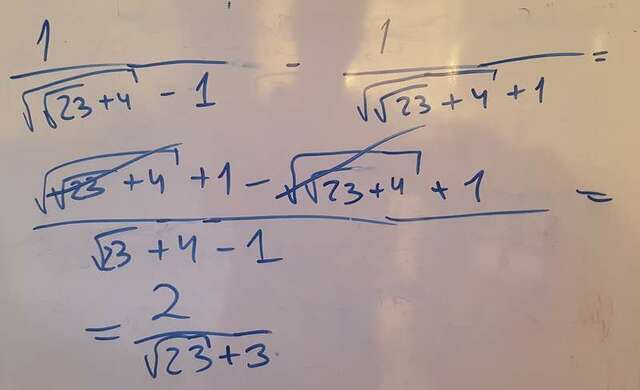 1/(√(√23+4) - 1) - 1/(√(√23+4) + 1) =
(√(√23+4) + 1 - √(√23+4) + 1)/(√23 + 4 - 1) =
= 2/(√23 + 3)